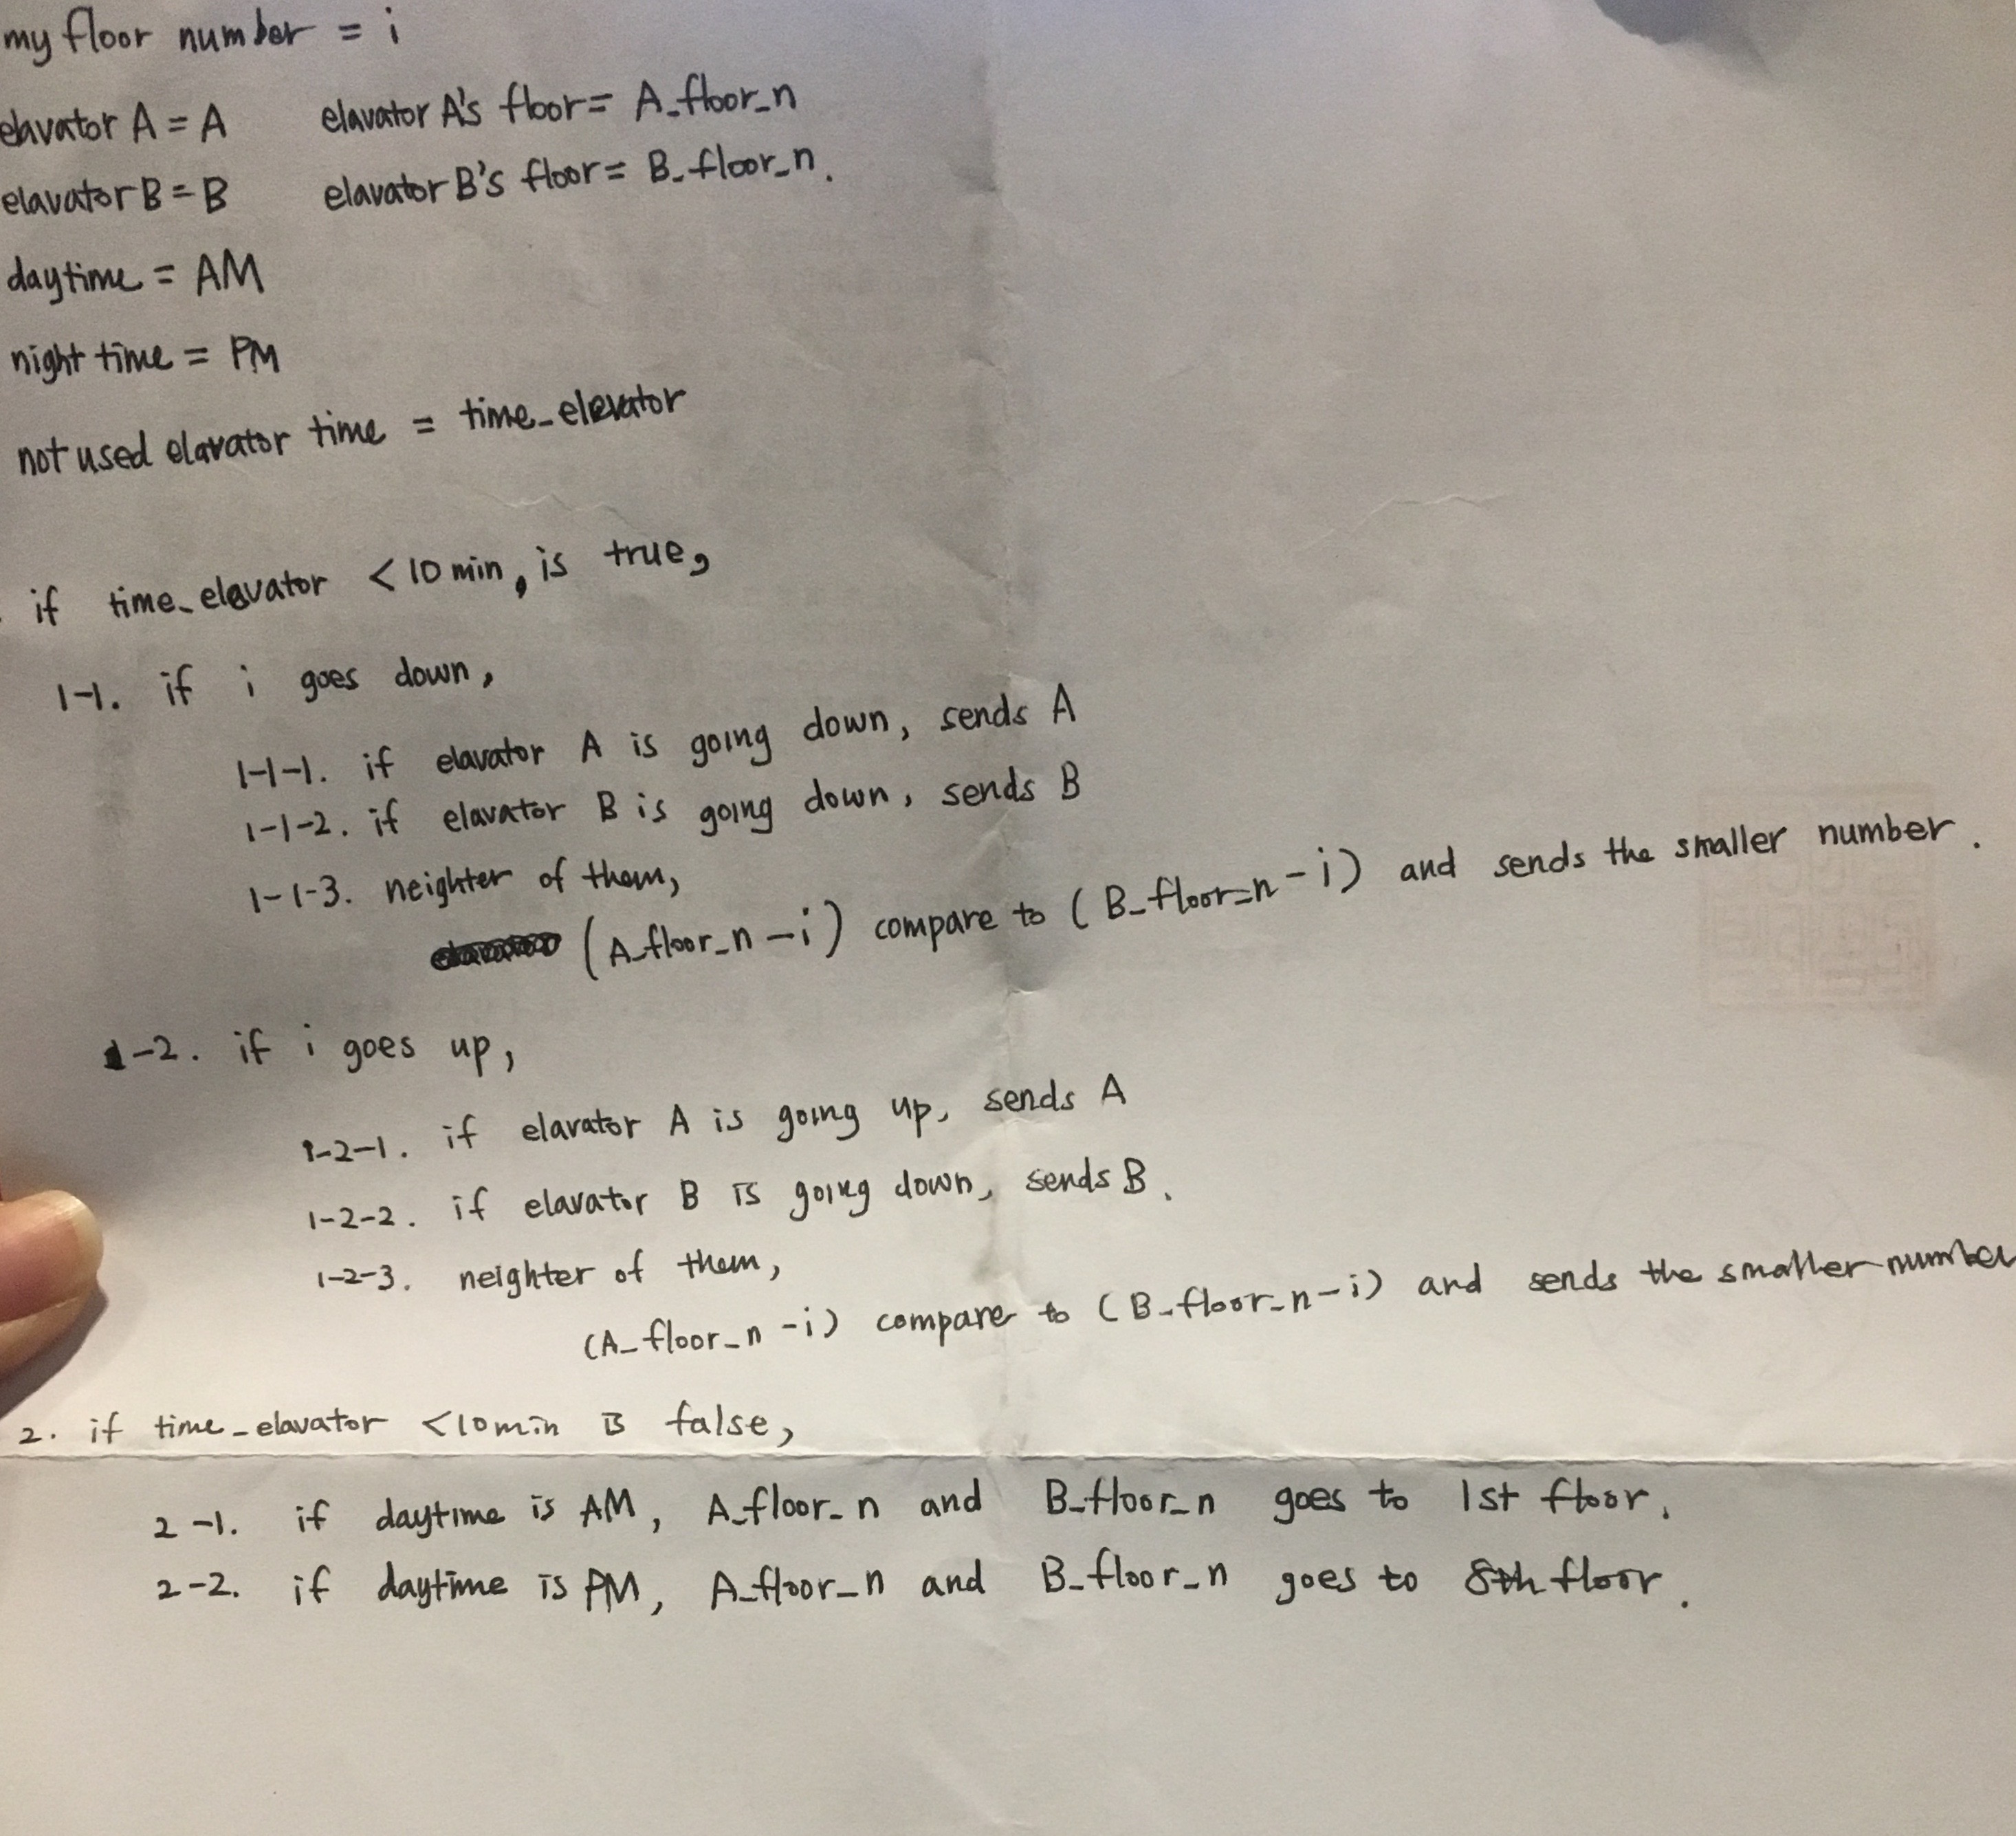 my floor number = i
elavator A = A elavator A's floor = A_floor_n
elavator B = B elavator B's floor = B_floor_n.
daytime = AM
night time = PM
not used elavator time = time_elevator
if time_elevator < 10 min, is true,
1-1. if i goes down,
1-1-1. if elavator A is going down, sends A
1-1-2. if elavator B is going down, sends B
1-1-3. neighter of them,
(A_floor_n - i) compare to (B_floor_n - i) and sends the smaller number.
1-2. if i goes up,
1-2-1. if elavator A is going up, sends A
1-2-2. if elavator B is going down, sends B.
1-2-3. neighter of them,
(A_floor_n - i) compare to (B_floor_n - i) and sends the smaller number
2. if time_elavator < 10 min is false,
2-1. if daytime is AM, A_floor_n and B_floor_n goes to 1st floor.
2-2. if daytime is PM, A_floor_n and B_floor_n goes to 8th floor.